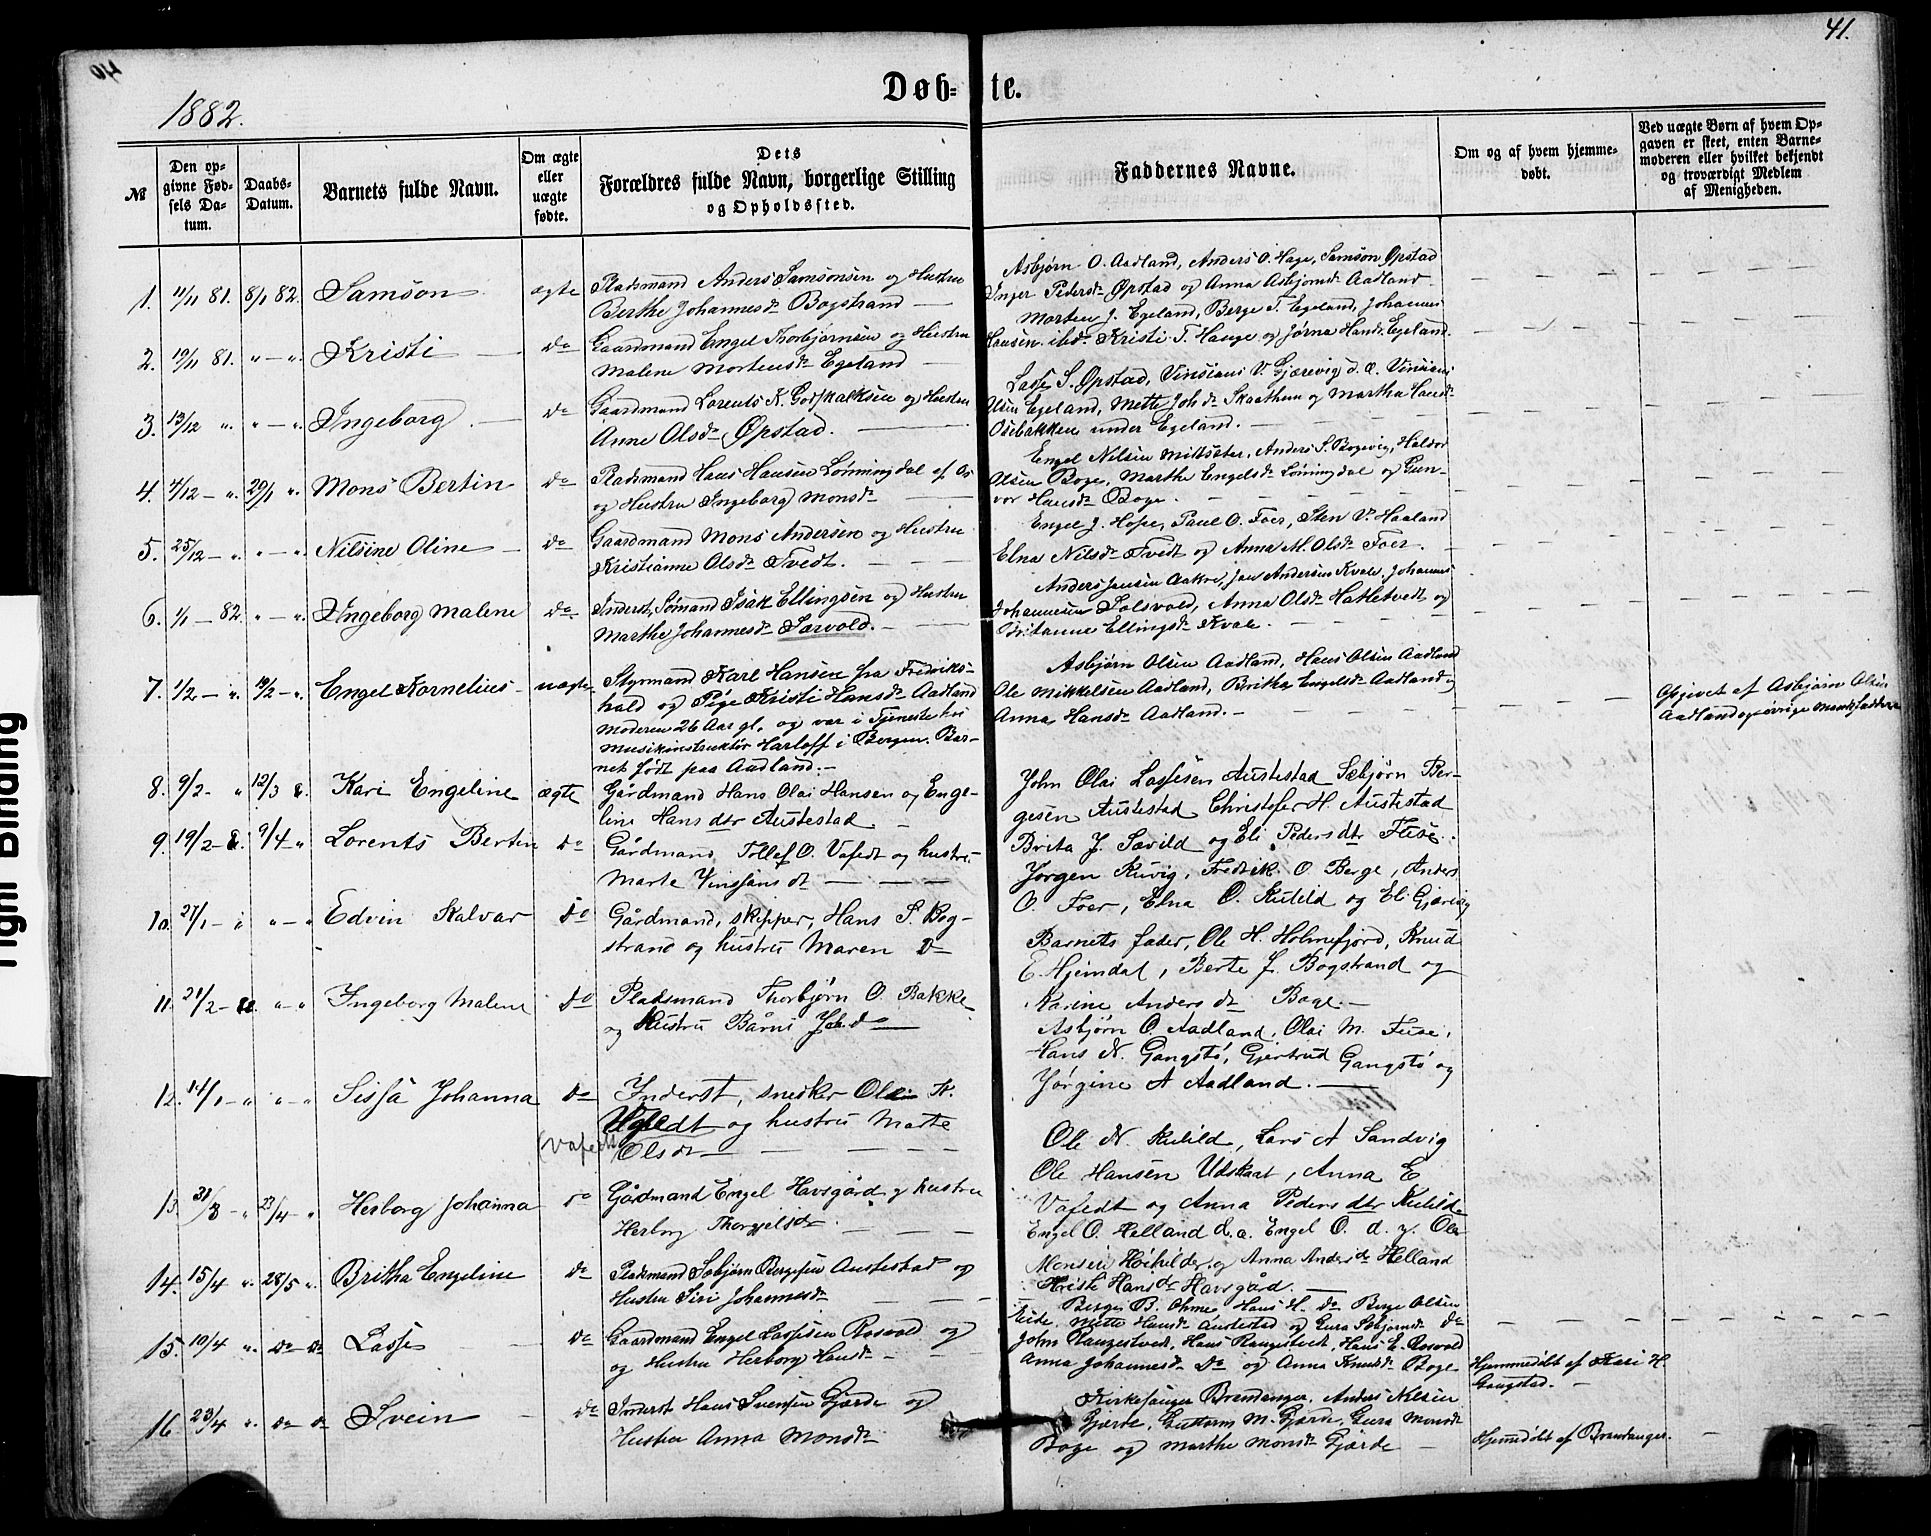 41.
Døb-te.
1882.
№
Den op-
givne Fød-
sels Da-
tum.
Daabs-
Datum.
Barnets fulde Navn.
Om ægte
eller
uægte
fødte.
Dets
Forældres fulde Navn, borgerlige Stilling
og Opholdssted.
Faddernes Navne.
Om og af hvem hjemme-
døbt.
Ved uægte Børn af hvem Op-
gaven er skeet, enten Barne-
moderen eller hvilket bekjendt
og troværdigt Medlem
af Menigheden.
1. 11/11 81. 8/1 82. Samson ægte Pladsmand Anders Samsonsen og Hustru
Berthe Johannesdr Bogstrand
Asbjørn O. Aadland, Anders O. Hage, Samson Øpstad
Inger Pedersdr Øpstad og Anna Asbjørnsdr Aadland
2. 19/11 81. " - ". Kristi - do Gaardmand Engel Thorbjørnsen og Hustru
Malene Mortensdr Egeland
Morten J. Egeland, Berge T. Egeland, Johannes
Hansen ibd. Kristi T. Hauge og Jørna Hansd. Egeland.
3. 13/12 " " - ". Ingeborg - do Gaardmand Lorents K. Godskalksen og Hustru
Anne Olsdr Øpstad.
Lasse S. Øpstad, Vinsians V. Gjærevig d. æ. Vinsians
Olsen Egeland, Mette Joh dr Skaathem og Martha Hansdr
Osebakken under Egeland.
4. 4/12 - ". 29/1 ". Mons Bertin do Pladsmand Hans Hansen Lønningdal af Os
og Hustru Ingeborg Monsdr
Engel Nilsen Midtsæter, Anders S. Bogevig, Haldor
Olsen Boge, Marthe Engelsdr Lønningdal og Gun-
vor Hansdr Boge.
5. 25/12 - ". " - ". Nilsine Oline - do Gaardmand Mons Andersen og Hustru
Kristianne Olsdr Tvedt.
Engel J. Hope, Paul O. Foer, Sten V. Haaland
Elna Nilsdr Tvedt og Anna M. Olsdr Foer.
6. 1/1 - 82. " - ". Ingeborg Malene do. Inderst, Sømand Isak Ellingsen og Hustru
Marthe Johannesdr Sævold.
Anders Jansen Aakre, Jan Andersen Kvale, Johannes
Johannesen Solsvold, Anna Olsdr Hatletvedt og
Britanne Ellingsdr Kvale
7. 1/2 - ". 19/2 - ". Engel Kornelius - uægte Styrmand Karl Hansen fra Fredriks-
hald og Pige Kristi Hansdr Aadland
Moderen 26 Aar gl, og var i Tjeneste hos
Musikinstruktør Harloff i Bergen. Bar-
net født paa Aadland.
Asbjørn Olsen Aadland, Hans Olsen Aadland
Ole Mikkelsen Aadland, Britha Engelsdr Aadland og
Anna Hansdr Aadland.
Opgivet af Asbjørn Olsen
Aadland og øvrige Mandsfaddere
8. 9/2 - " 12/3 Kari Engeline ægte Gårdmand Hans Olai Hansen og Enge-
line Hans dtr Austestad
John Olai Lassesen Austestad Sæbjørn Ber-
gesen Austestad Christofer H. Austestad
Brita J. Sævild og Eli Pedersdtr Fuse.
9. 19/2 - 9/4 - " Lorents Bertin do Gårdmand Tollef O. Vafedt og hustru
Marte Vinsjansdt
Jørgen Kuvig, Fredrik O. Berge, Anders
O. Foer, Elna O. Kulild og Eli Gjærevig
10. 27/1 - " " - " Edvin Kalvar do Gårdmand, skipper, Hans S. Bog-
strand og hustru Maren D
Barnets fader, Ole H. Holmefjord, Knud
E. Hjemdal, Berte J. Bogstrand og
Karine Andersdr Boge.
11. 21/2 - " - " Ingeborg Malene do Pladsmand Thorbjørn O. Bakke
og Hustru Bårni Johd
Asbjørn O. Aadland, Olai M. Fuse,
Hans N. Gangstø, Gjertrud Gangstø og
Jørgine A Aadland.
12. 14/1 - " " - " Sissa Johanna do Inderst, snekker Ole K.
Vafedt og hustru Marte
(Vafedt) Olsdt
Ole N. Kulild, Lars A Sandvig
Ole Hansen Udskaat, Anna E
Vafedt og Anna Pedersdtr Kulild
13. 31/3 - " 23/4 " Herborg Johanna do Gårdmand Engel Havsgård og hustru
Herborg Thorgjelsdr
Engel O. Helland d.æ. Engel O. d. y. Ole
Monsen Høihilder og Anna Andersdr Helland
Kriste Hansdr Havsgård.
14. 15/4 ". 28/5 ". Britha Engeline do Pladsmand Sæbjørn Bergesen Austestad og
Hustru Siri Johannesdr
Berge B. Ohme Hans H. do Berge Olsen
Eide. Mette Hansdr Austestad og Gura Sebjørnsdr do
15. 10/4 ". do - do Lasse do Gaardmand Engel Lassesen Rosvold og
og Hustru Herborg Hansdr
John Rangestvedt, Hans Rangestvedt, Hans E. Rosvold
Anna Johannesdr do og Anna Knutsdr Boge
Hjemmedøbt af Kari H.
Gangstad.
16 23/4 ". do do Svein do Inderst Hans Svensen Gjerde og
Hustru Anna Monsdr
Kirkesanger Brandanger, Anders Nilsen
Gjerde, Guttorm M. Gjerde, Gura Monsdr
Boge og Marthe Monsdr Gjerde
Hjemmedøbt af Brandanger.
Tight Binding